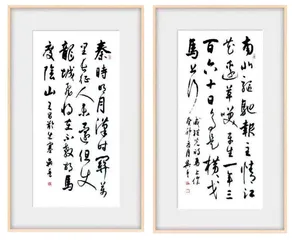 秦時明月漢時關萬
里長征人未還但使
龍城飛將在不教胡馬
度陰山 王昌齡出塞
南北驅馳報主情江
花邊草笑平生一年三
百六十日多是橫戈
馬上行 戚繼光馬上作